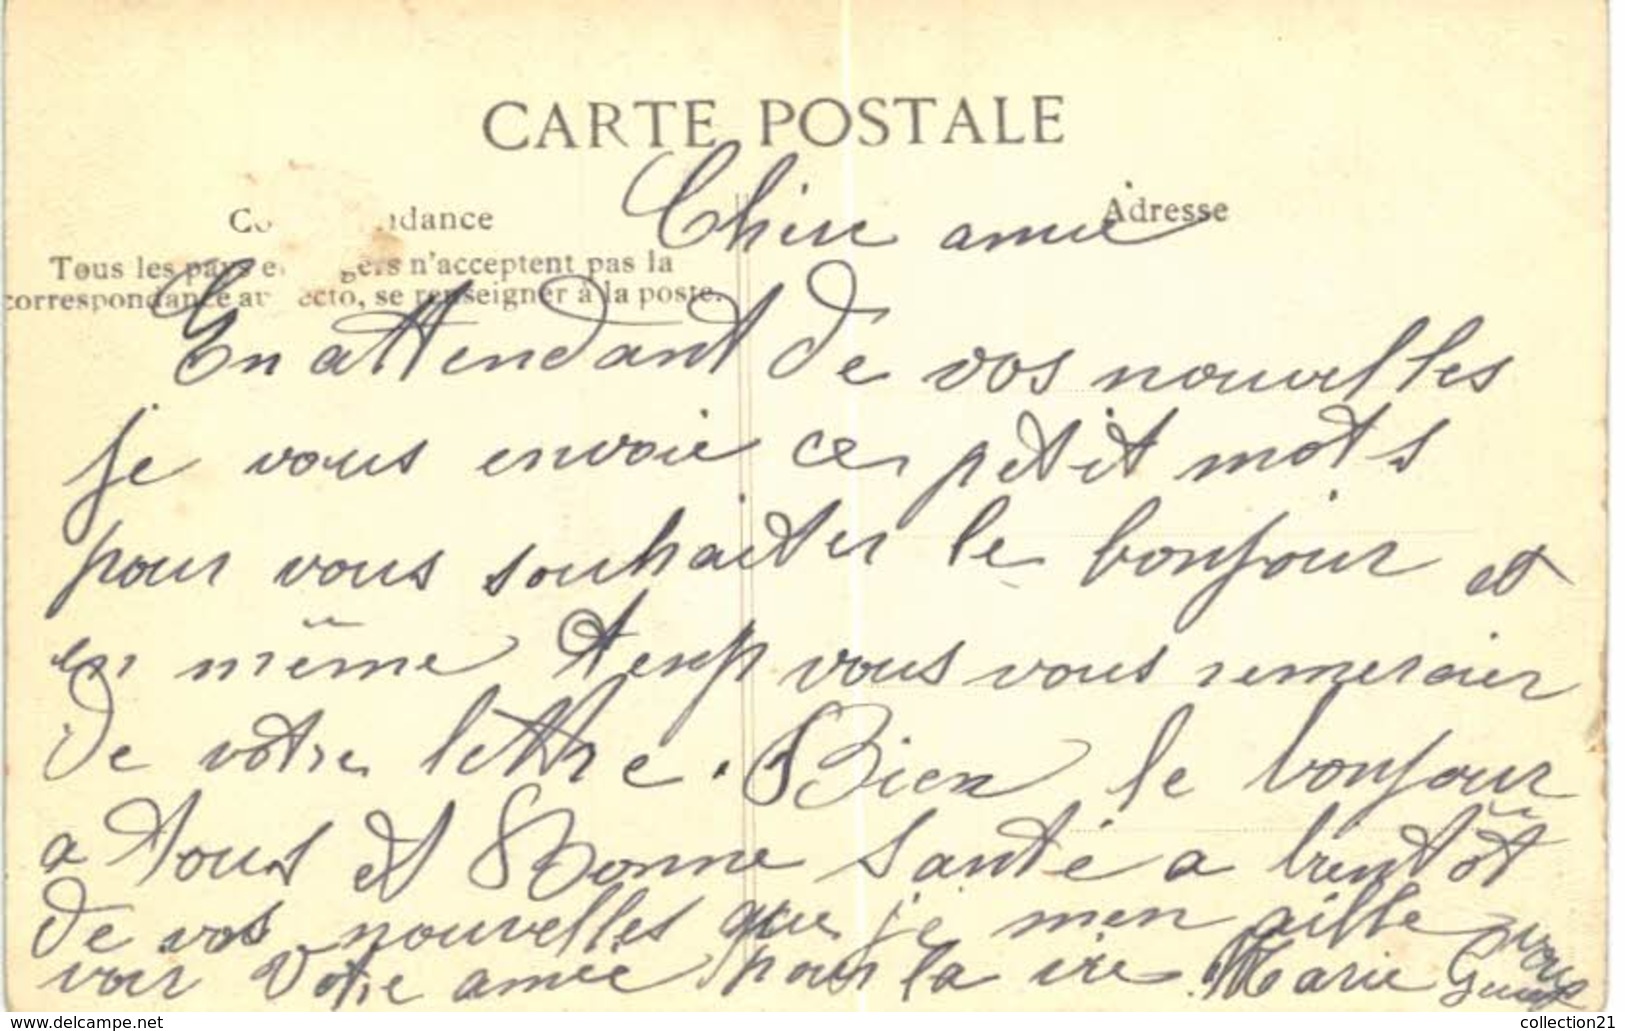 CARTE POSTALE
Chere amie
Co ndance
Adresse
Tous les pays e gers n'acceptent pas la
correspondance au recto, se renseigner à la poste.
En attendant de vos nouvelles
je vous envoie ce petit mots
pour vous souhaiter le bonjour et
en même temp vous vous remercier
de votre lettre. Bien le bonjour
a tous et Bonne santé a bientôt
de vos nouvelles que je men aille vous
voir Votre amie pour la vie Marie
collection21
www.delcampe.net